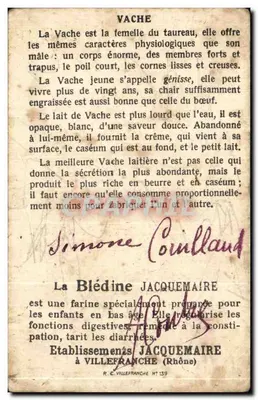 VACHE
La Vache est la femelle du taureau, elle offre
les mêmes caractères physiologiques que son
mâle : un corps énorme, des membres forts et
trapus, le poil court, les cornes lisses et creuses.
La Vache jeune s'appelle génisse, elle peut
vivre plus de vingt ans, sa chair suffisamment
engraissée est aussi bonne que celle du bœuf.
Le lait de Vache est plus lourd que l'eau, il est
opaque, blanc, d'une saveur douce. Abandonné
à lui-même, il fournit la crème, qui vient à sa
surface, le caséum qui est au fond, et le petit lait.
La meilleure Vache laitière n'est pas celle qui
donne la sécrétion la plus abondante, mais le
produit le plus riche en beurre et en caséum ;
il faut encore qu'elle consomme proportionnelle-
ment moins pour fabriquer l'un et l'autre.
Simone Couilland
La Blédine JACQUEMAIRE
est une farine spécialement préparée pour
les enfants en bas âge. Elle régularise les
fonctions digestives, remédie à la consti-
pation, tarit les diarrhées.
Etablissements JACQUEMAIRE
à VILLEFRANCHE (Rhône)
R. C. VILLEFRANCHE N° 139